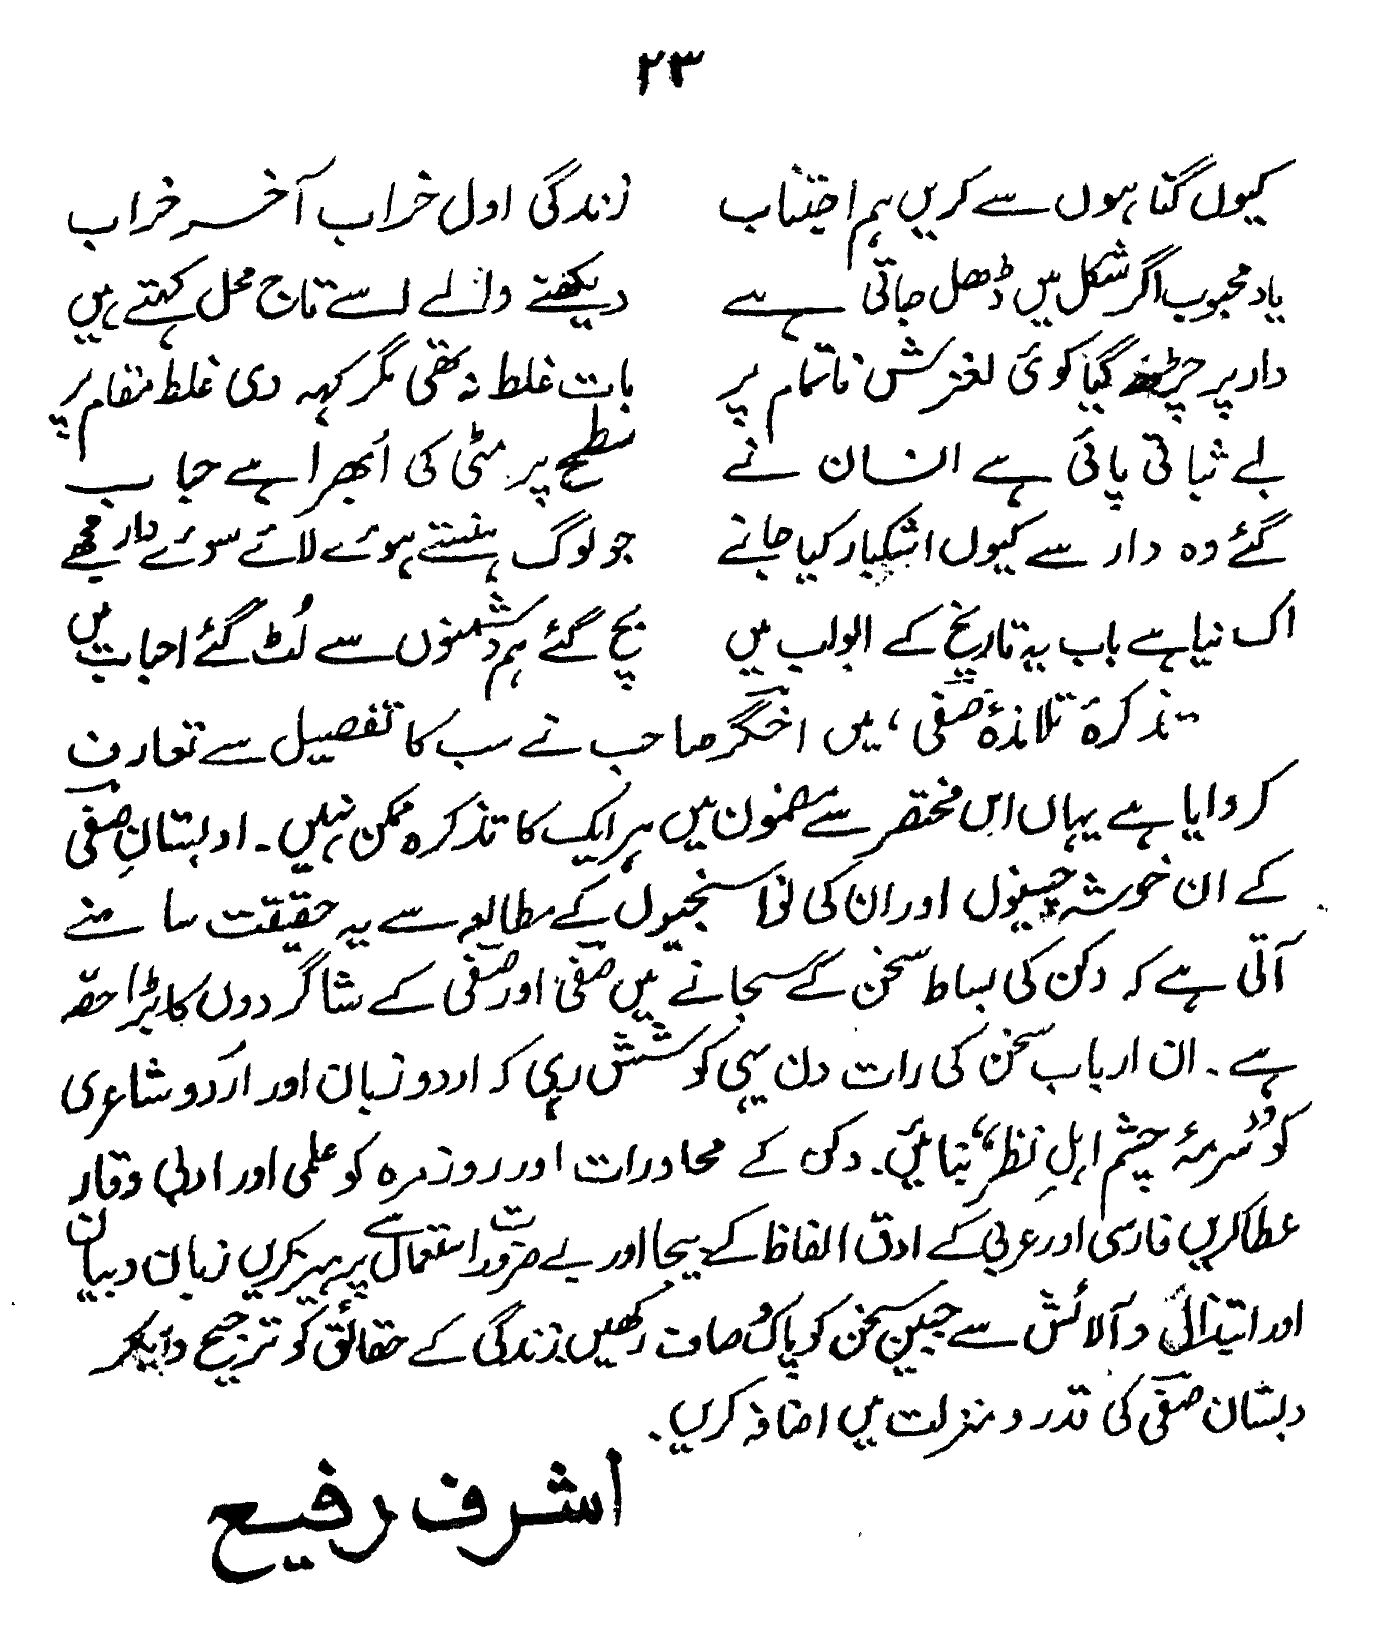 ۲۳
کیوں گناہوں سے کریں ہم اجتناب زندگی اول خراب آخر خراب
یاد محبوب اگر شکل میں ڈھل جاتی ہے دیکھنے والے اسے تاج محل کہتے ہیں
دار پر چڑھ گیا کوئی لغزش ناتمام پر بات غلط نہ تھی مگر کہہ دی غلط مقام پر
بے ثباتی پائی ہے انسان نے سطح پر مٹی کی اُبھرا ہے حباب
گئے وہ دار سے کیوں اشکبار کیا جانے جو لوگ ہنستے ہوئے لائے سوئے دار مجھے
اک نیا ہے باب یہ تاریخ کے ابواب میں بچ گئے ہم دشمنوں سے لُٹ گئے احباب میں
تذکرۂ تلامذۂ صفی، میں اخگر صاحب نے سب کا تفصیل سے تعارف
کروایا ہے یہاں اس مختصر سے مضمون میں ہر ایک کا تذکرہ ممکن نہیں۔ ادبستانِ صفی
کے ان خوشہ چینوں اور ان کی نوا سنجیوں کے مطالعہ سے یہ حقیقت سامنے
آتی ہے کہ دکن کی بساط سخن کے سجانے میں صفی اور صفی کے شاگردوں کا بڑا حصّہ
ہے۔ ان ارباب سخن کی رات دن یہی کوشش رہی کہ اردو زبان اور اُردو شاعری
کو "سرمۂ چشم اہلِ نظر" بنائیں۔ دکن کے محاورات اور روزمرہ کو علمی اور ادبی وقار
عطا کریں فارسی اور عربی کے ادق الفاظ کے بیجا اور بے ضرورت استعمال سے پرہیز کریں زبان و بیان
اور ابتذال و آلائش سے جبینِ سخن کو پاک و صاف رکھیں زندگی کے حقائق کو ترجیح دیکر
دبستان صفی کی قدر و منزلت میں اضافہ کریں۔
اشرف رفیع